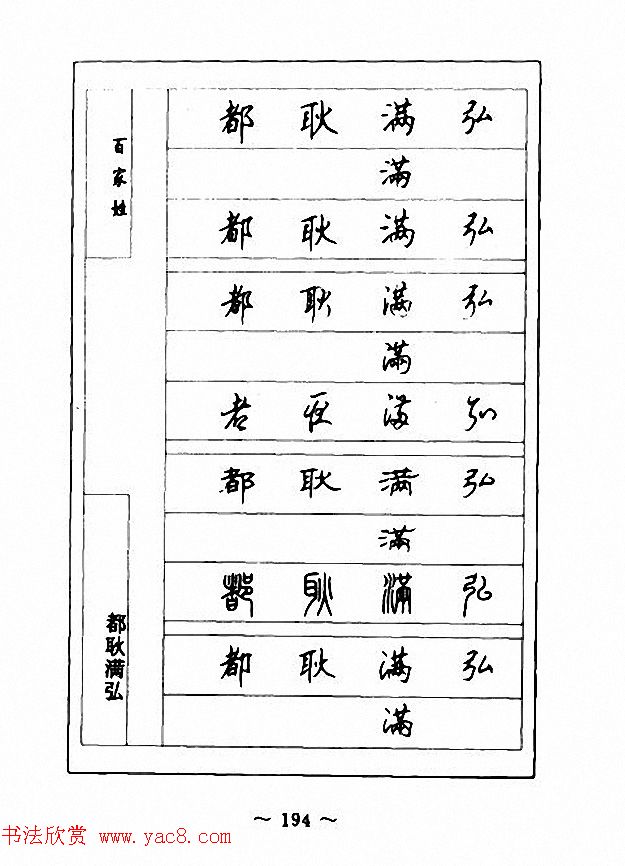 百家姓
都耿满弘
都 耿 满 弘
滿
都 耿 满 弘
都 耿 满 弘
滿
都 耿 满 弘
都 耿 满 弘
滿
都 耿 滿 弘
都 耿 满 弘
滿
~ 194 ~
书法欣赏 www.yac8.com